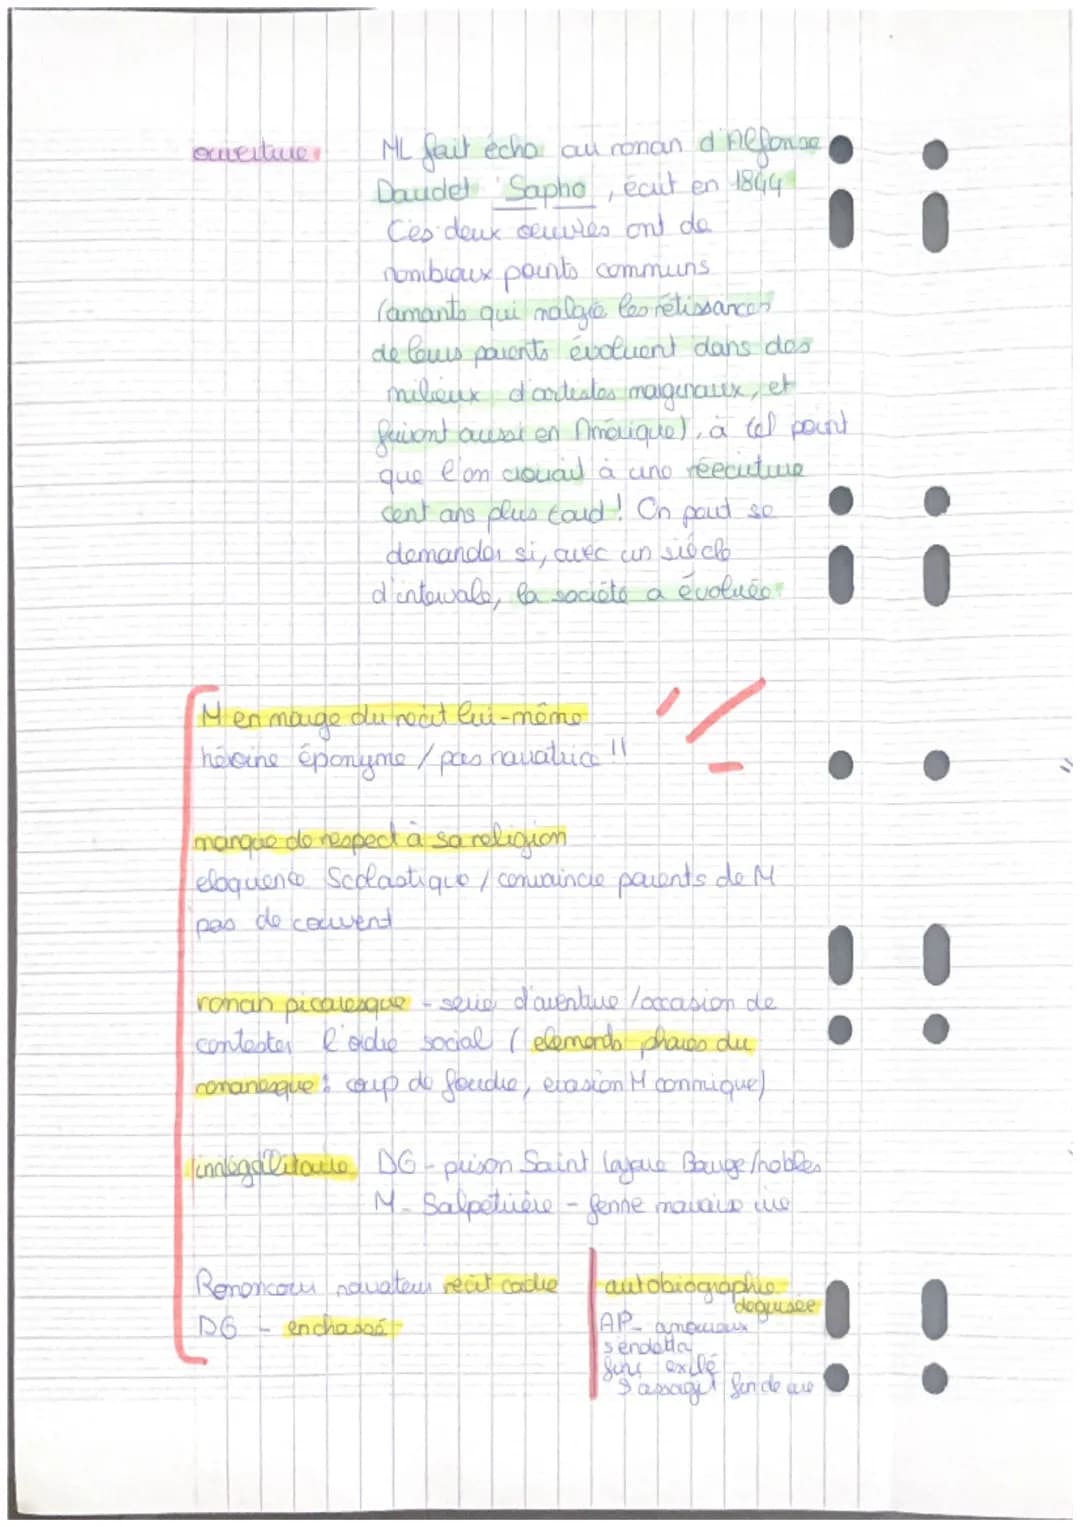 ouverture
ML fait écho au roman d'Alfonse
Daudet Sapho, écrit en 1844
Ces deux œuvres ont de
nombreux points communs
(amants qui malgré les rétissances
de leurs parents évoluent dans des
milieux d'artistes marginaux, et
fuiront aussi en Amérique), à tel point
que l'on croirait à une réecriture
cent ans plus tard ! On peut se
demander si, avec un siècle
d'intervale, la société a évoluée
M en marge du récit lui-même
héroine éponyme / pas narratrice !!
marque de respect à sa religion
eloquence Scolastique / convaincre parents de M
pas de couvent
roman picaresque - serie d'aventure / occasion de
contester l'ordre social (elements phares du
romanesque : coup de foudre, evasion M commique)
innégalitaire DG - prison Saint Lazare Bourge/nobles
M - Salpetrière - femme mauvaise vie
Renoncour narrateur recit cadre
DG - enchassé
autobiographie
deguisée
AP - amoureux
s'endetta
fuire exilé
s'assagit fin de vie